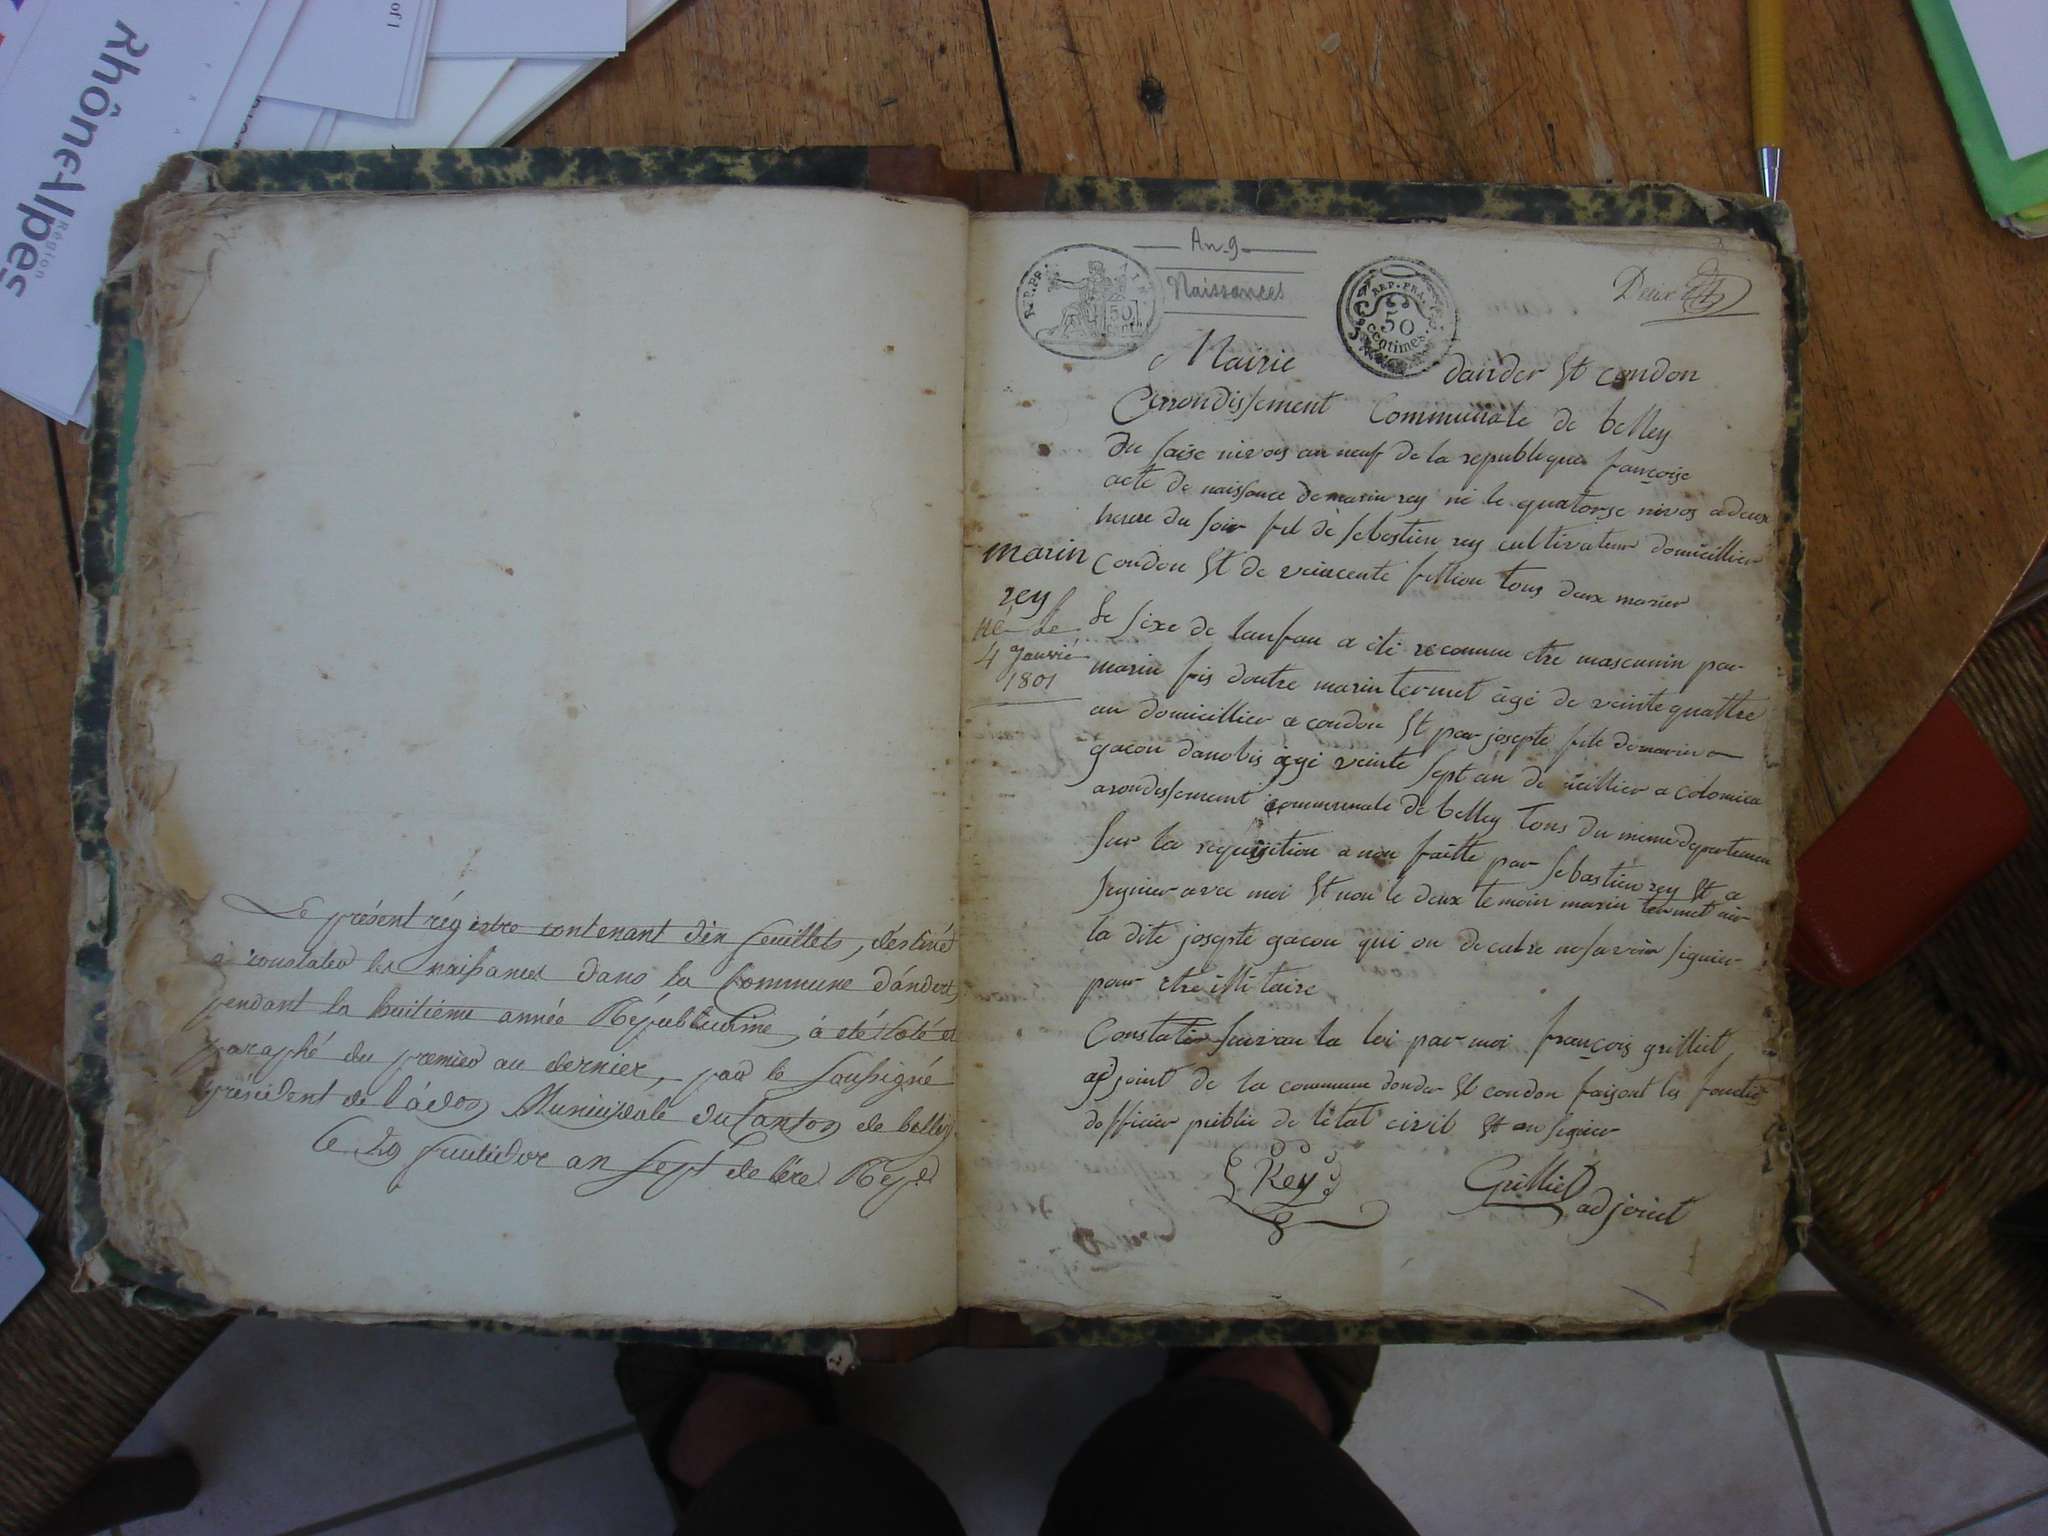 Rhône-Alpes
Région
of 1
Le présent régistre contenant dix feuillets, déstiné
a constater les naissances dans la Commune d'andert
pendant la huitiéme année Républicaine, à été Coté et
paraphé du premier au dernier, par le Soussigné
président de l'ádon Municipale du Canton de belley.
le 29 fructidor an Sept de l'ère Rép.
An 9
Naissances
REP. FRA.
50
centimes
Deux
Mairie dander Et condon
Arrondissement Communale de belley
du saise nivos an neuf de la republique francoise
acte de naissance de marin rey né le quatorse nivos a deux
heure du soir fil de sebastien rey cultivateur domicillier
condon Et de veincente fillion tous deux marier
le sixe de lanfan a été reconnu etre masculin par
marin fis dautre marin termet âgé de veinte quattre
an domicillier a condon Et par josepte file de marin
gacon danobis agé veinte sept an domicillier a colomieu
arondissement communale de belley tous du meme departemen
sur la requisition a nou faitte par sebastien rey Et a
signier avec moi Et non le deux temoin marin termet ni
la dite josepte gacon qui on decalre ne savoir signier
pour etre illitaire
Constater suivan la loi par moi francois grilliet
adjoint de la commune dander Et condon faisant les fonctions
dofficier public de l'état civil Et on signier
Rey Grilliet
adjoint
marin
rey
né le
4 Janvié
1801